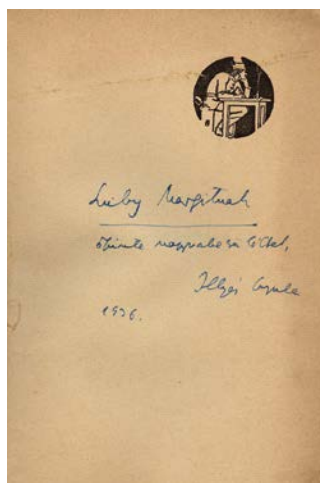 Luby Margitnak
őszinte nagyrabecsüléssel,
Illyés Gyula
1936.